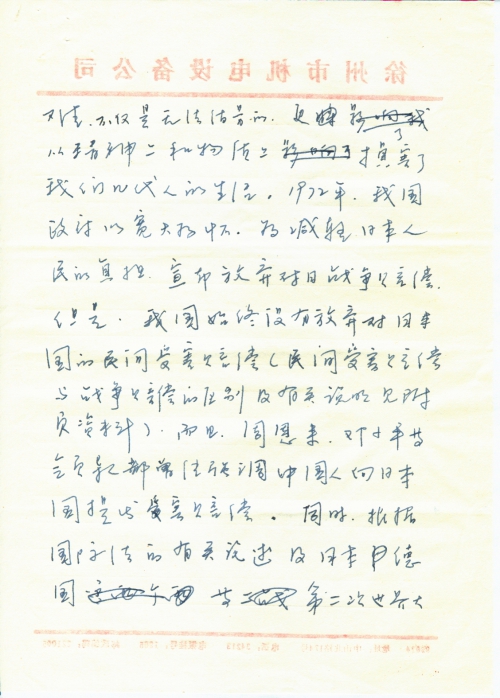 徐州市机电设备公司
不仅是无法估量的.更
从精神上和物质上影响了损害了
我们几代人的生活。1972年.我国
政府以宽大胸怀.为减轻日本人
民的负担.宣布放弃对日战争赔偿.
但是.我国始终没有放弃对日本
国的民间受害赔偿(民间受害赔偿
与战争赔偿的区别及有关说明见附
页资料).而且.周恩来.邓小平等
都强调中国人向日本
国提出受害赔偿.同时.根据
国际法的有关论述及日本德
国等第二次世界大